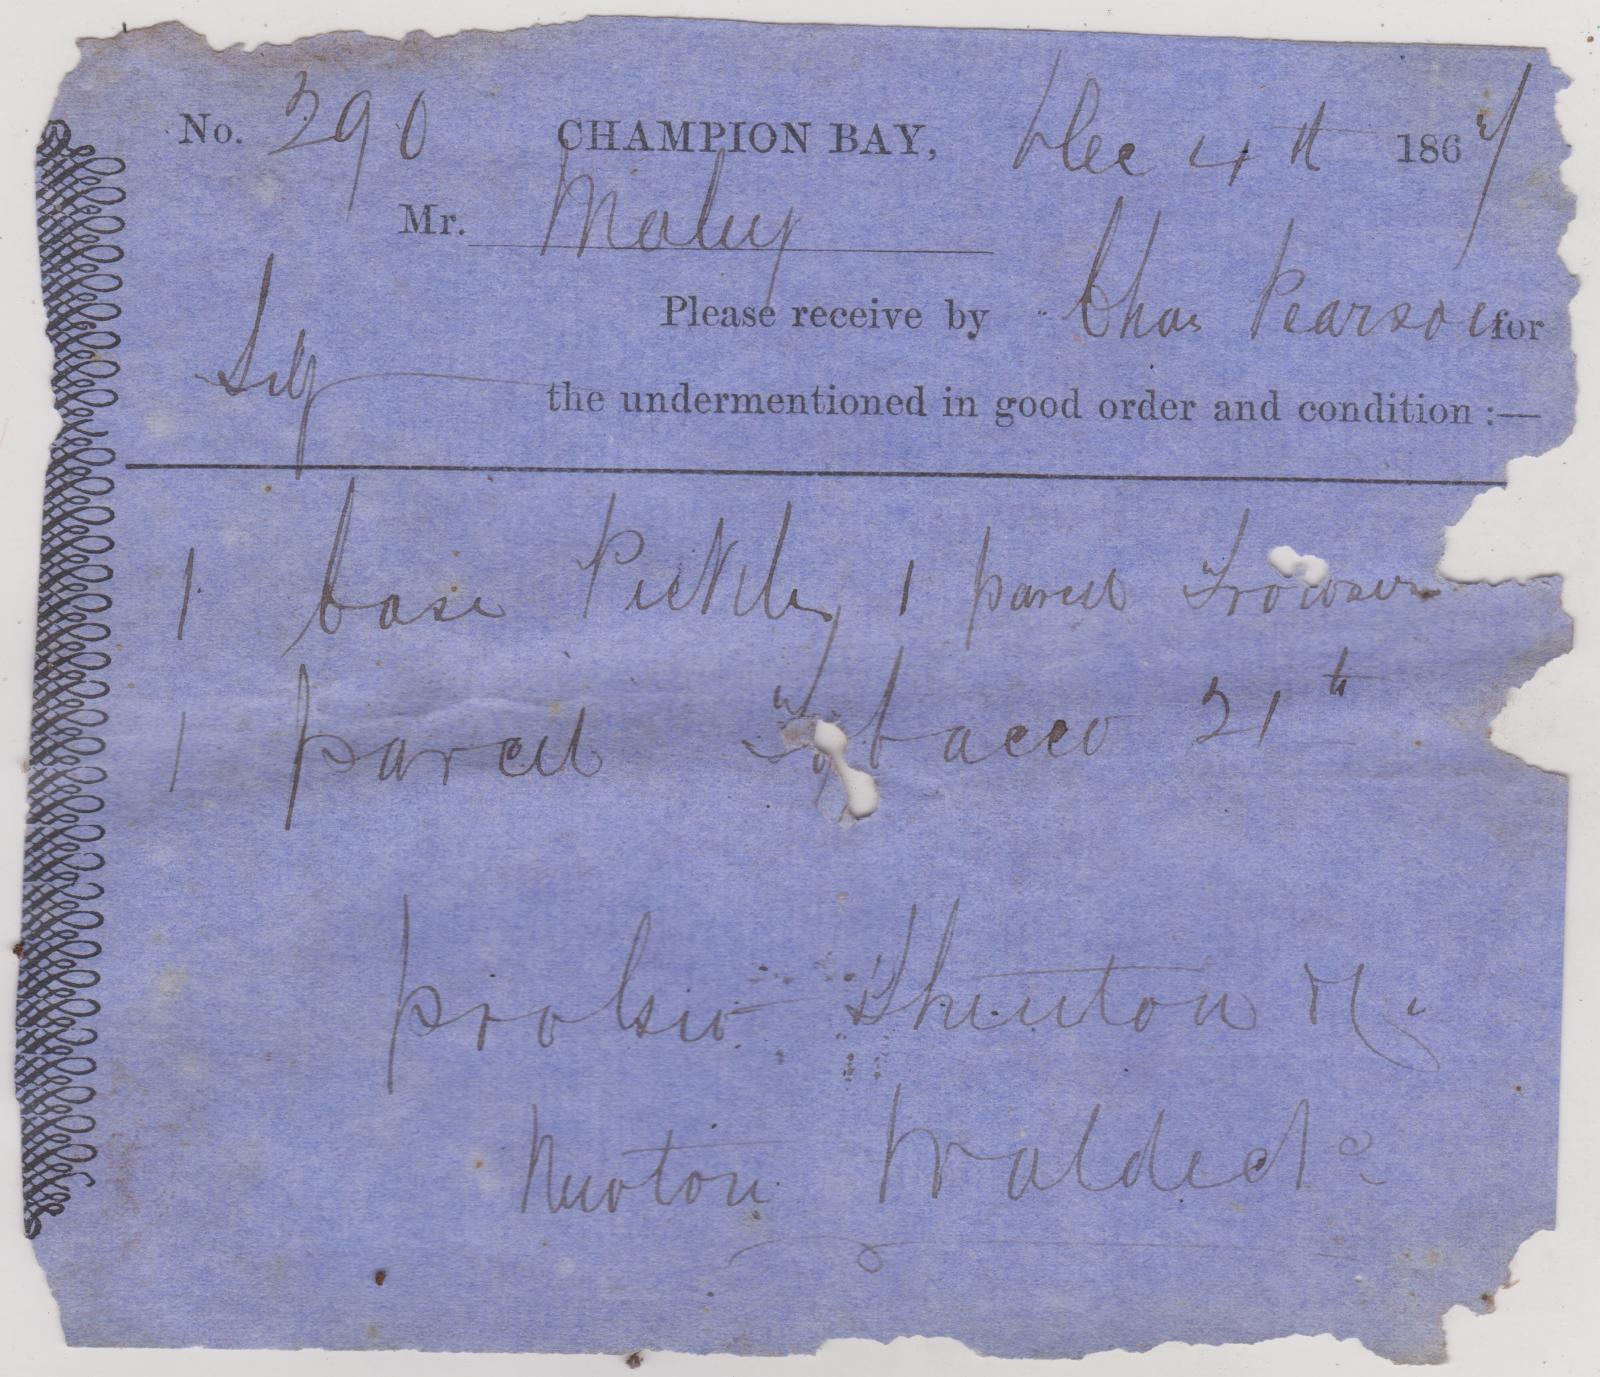 No. 390 CHAMPION BAY, Dec 4th 1867
Mr. Maley
Please receive by Chas Pearson for
Self the undermentioned in good order and condition :—
1 Case Pickles 1 parcel Trowsers
1 parcel Tobacco 21 lb
pro Geo Shenton
Newton Waldeck